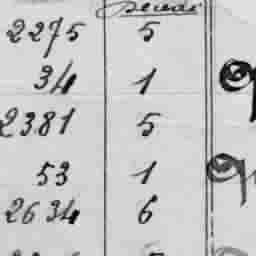 2275 5
34 1
2381 5
53 1
2634 6